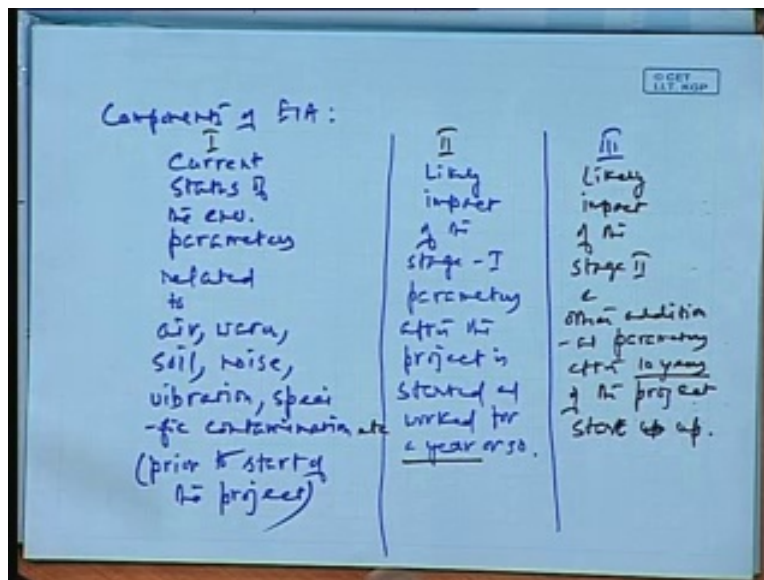 © CET
I.I.T. KGP
Components of EIA:
I
Current
Status of
the env.
parameters
related
to
air, water,
soil, noise,
vibration, speci
-fic contamination etc
(prior to start of
the project)
II
Likely
impact
of the
stage - I
parameters
after the
project is
started &
worked for
a year or so.
III
Likely
impact
of the
stage II
&
other addition
-al parameters
after 10 years
of the project
start up.